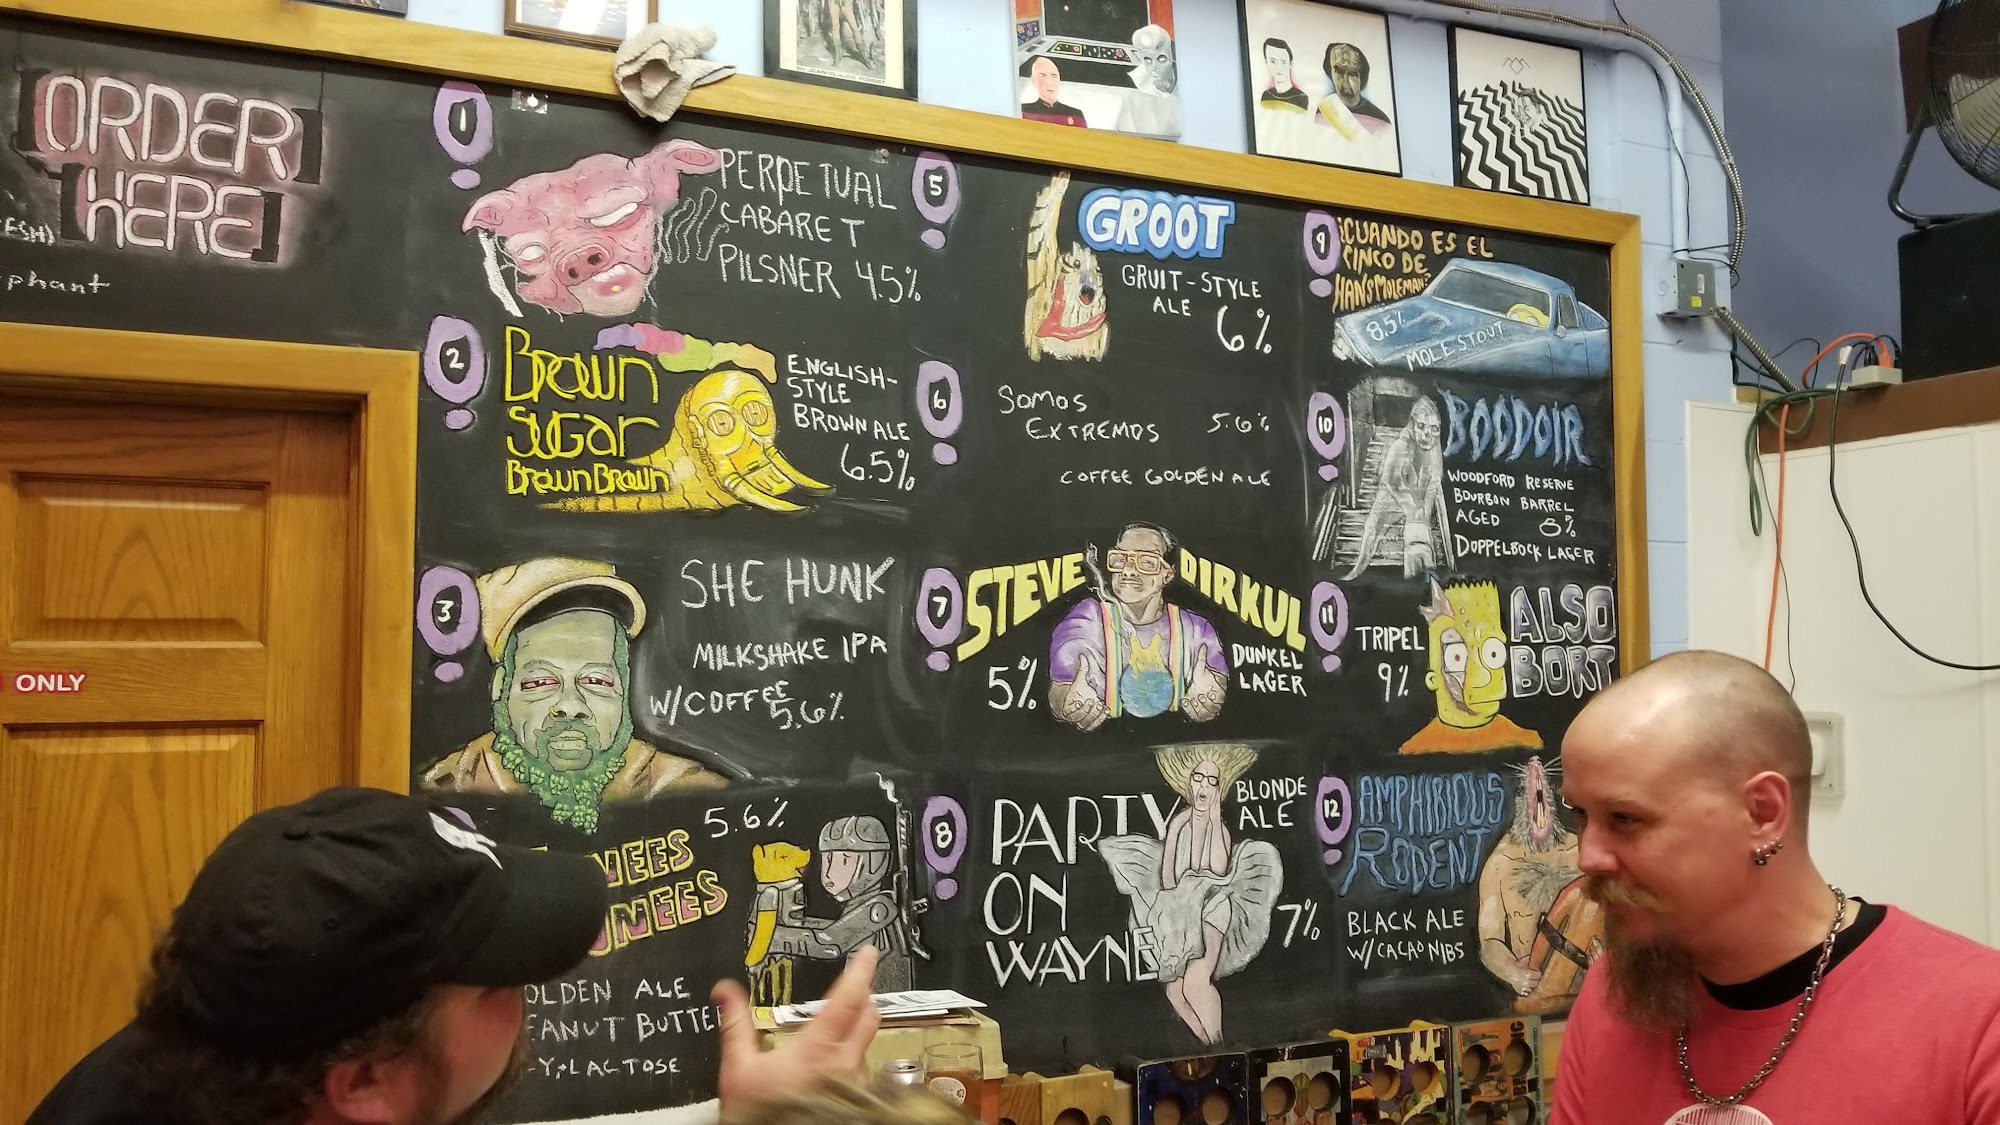 ORDER
HERE
ONLY
1
PERPETUAL
CABARET
PILSNER 4.5%
2
Brown
Sugar
Brown Brown
ENGLISH-
STYLE
BROWN ALE
6.5%
3
SHE HUNK
MILKSHAKE IPA
W/COFFEE
5.6%
5.6%
PEANUT BUTTER
LACTOSE
5
GROOT
GRUIT-STYLE
ALE
6%
6
SOMOS
EXTREMOS 5.6%
COFFEE GOLDEN ALE
7
STEVE DIRKUL
5%
DUNKEL
LAGER
8
PARTY
ON
WAYNE
BLONDE
ALE
7%
9
¿CUANDO ES EL
CINCO DE
HANS MOLEMAN?
8.5%
MOLE STOUT
10
BOUDOIR
WOODFORD RESERVE
BOURBON BARREL
AGED 8%
DOPPELBOCK LAGER
11
TRIPEL
9%
ALSO
BORT
12
AMPHIBIOUS
RODENT
BLACK ALE
W/CACAO NIBS